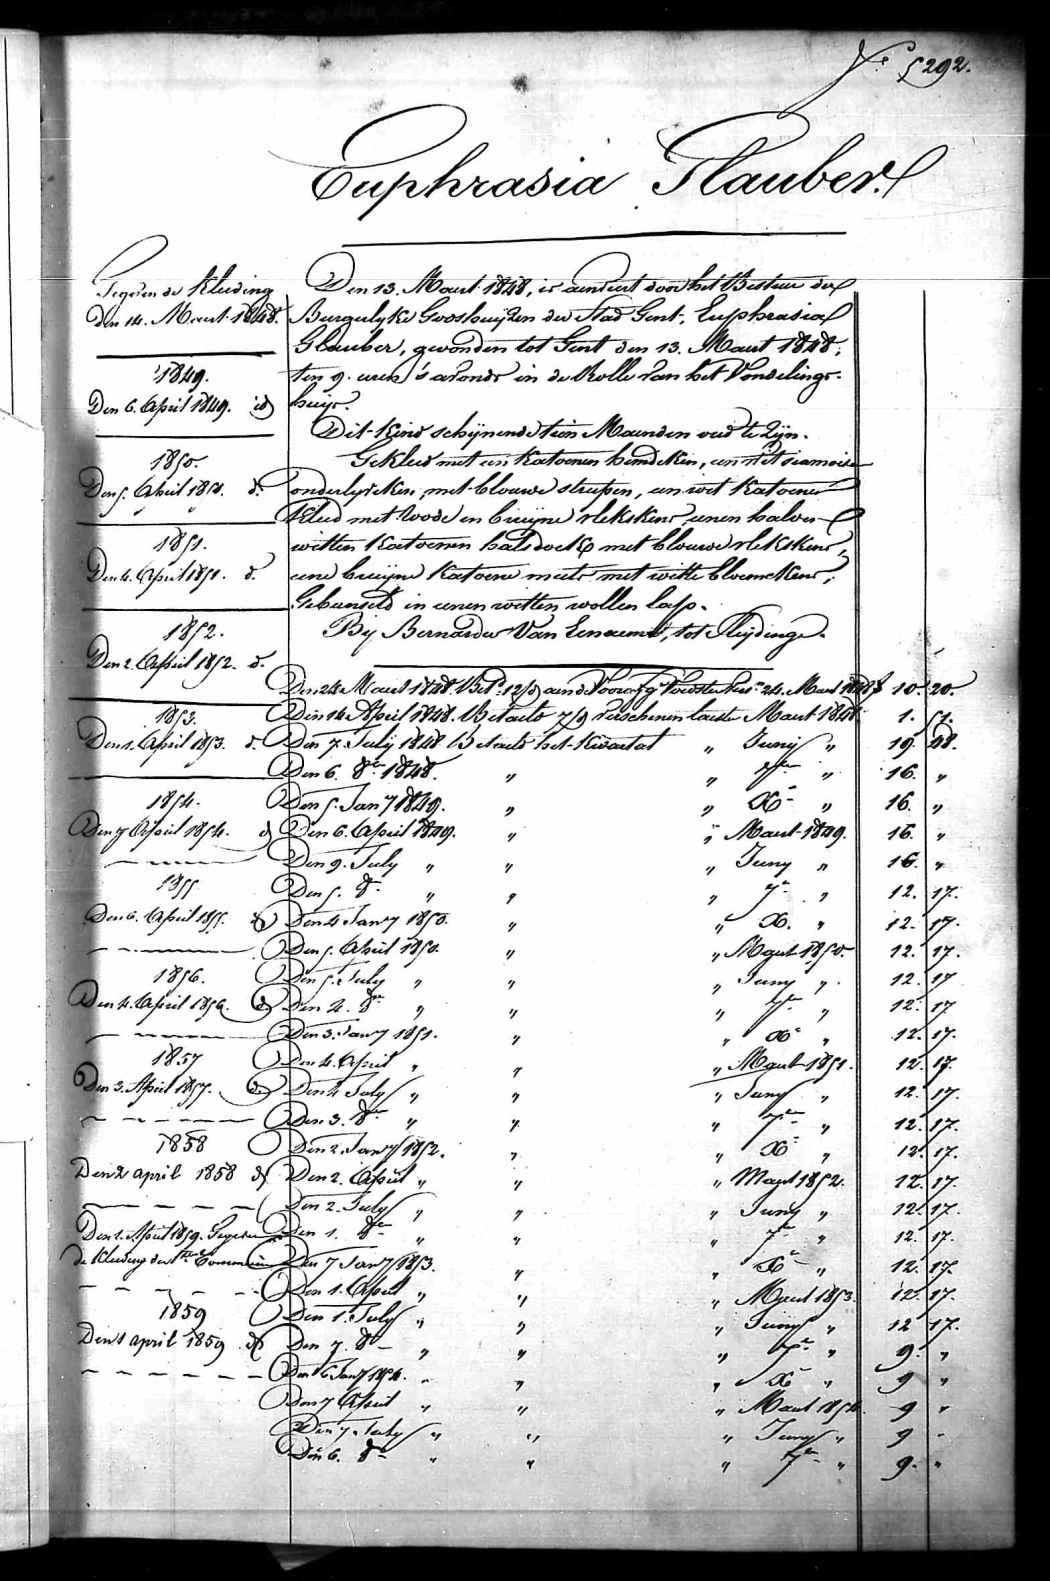 N.° 5292.
Euphrasia Glauber.
Gegeven de Kleeding
den 14. Maart 1848.
1849.
Den 6. April 1849. id
1850.
Den 5. April 1850. d.
1851.
Den 4. April 1851. d.
1852.
Den 2. April 1852. d.
1853.
Den 1. April 1853. d.
1854.
Den 7 April 1854. d
1855
Den 6. April 1855. d
1856.
Den 4. April 1856. d
1857
Den 3. April 1857. d
1858
Den 2 april 1858 d
Den 1. April 1859. Gegeven
de Kleeding der Communie
1859
Den 1 april 1859 d
Den 13. Maart 1848, is aenveert door het Bestuer der
Burgerlyke Godshuyzen der Stad Gent, Euphrasia
Glauber, gevonden tot Gent den 13. Maart 1848,
ten 9. uren 's avonds in de Rolle van het Vondelings-
huys.
Dit Kind schynende tien Maenden oud te zyn.
Gekleed met een Katoenen hemdeken, een wit siamoise
onderlyveken, met blouwe strepen, een wit Katoenen
Kleed met roode en bruyne vlekskens eenen halven
witten Katoenen halsdoek met blouwe vlekskens,
eene bruyne Katoene muts met witte bloemekens,
Gebunseld in eenen witten wollen lap.
By Bernardus Van Eenaeme, tot Sleydinge.
Den 24 Maart 1848 Bet.d 12/9 aen de Voorzg. Voedster 24. Maart 1848 f 10. 20.
Den 14 April 1848. Betaeld 7/9 verschenen laeste Maart 1848 1. 51.
Den 7. July 1848 Betaeld het Kwartael " Juny " 19 48.
Den 6. 8.er 1848. " " 7.er " 16. "
Den 5. Jan.y 1849. " " X.r " 16. "
Den 6. April 1849. " " Maart 1849. 16. "
Den 9. July " " " Juny " 16. "
Den 5. 8.r " " " 7.r " 12. 17.
Den 4 Jan.y 1850. " " X. " 12. 17.
Den 5. April 1850. " " Maart 1850. 12. 17.
Den 5. July " " " Juny " 12. 17
Den 4. 8.er " " " 7.r " 12. 17
Den 3. Jan.y 1851. " " X.r " 12. 17.
Den 4. April " " " Maart 1851. 12. 17.
Den 4 July " " " Juny " 12. 17.
Den 3. 8.er " " " 7.er " 12. 17.
Den 2. Jan.y 1852. " " X.r " 12. 17.
Den 2. April " " " Maart 1852. 12. 17.
Den 2. July " " " Juny " 12. 17.
Den 1. 8.er " " " 7.er " 12. 17.
Den 7 Jan.y 1853. " " X.r " 12. 17.
Den 1. April " " " Maart 1853. 12. 17.
Den 1. July " " " Juny " 12 17.
Den 7. 8.r " " " 7.er " 9. "
Den 6 Jan.y 1854. " " X.r " 9 "
Den 7 April " " " Maart 1854. 9 "
Den 7. July " " " Juny " 9 "
Den 6. 8.r " " " 7.er " 9. "